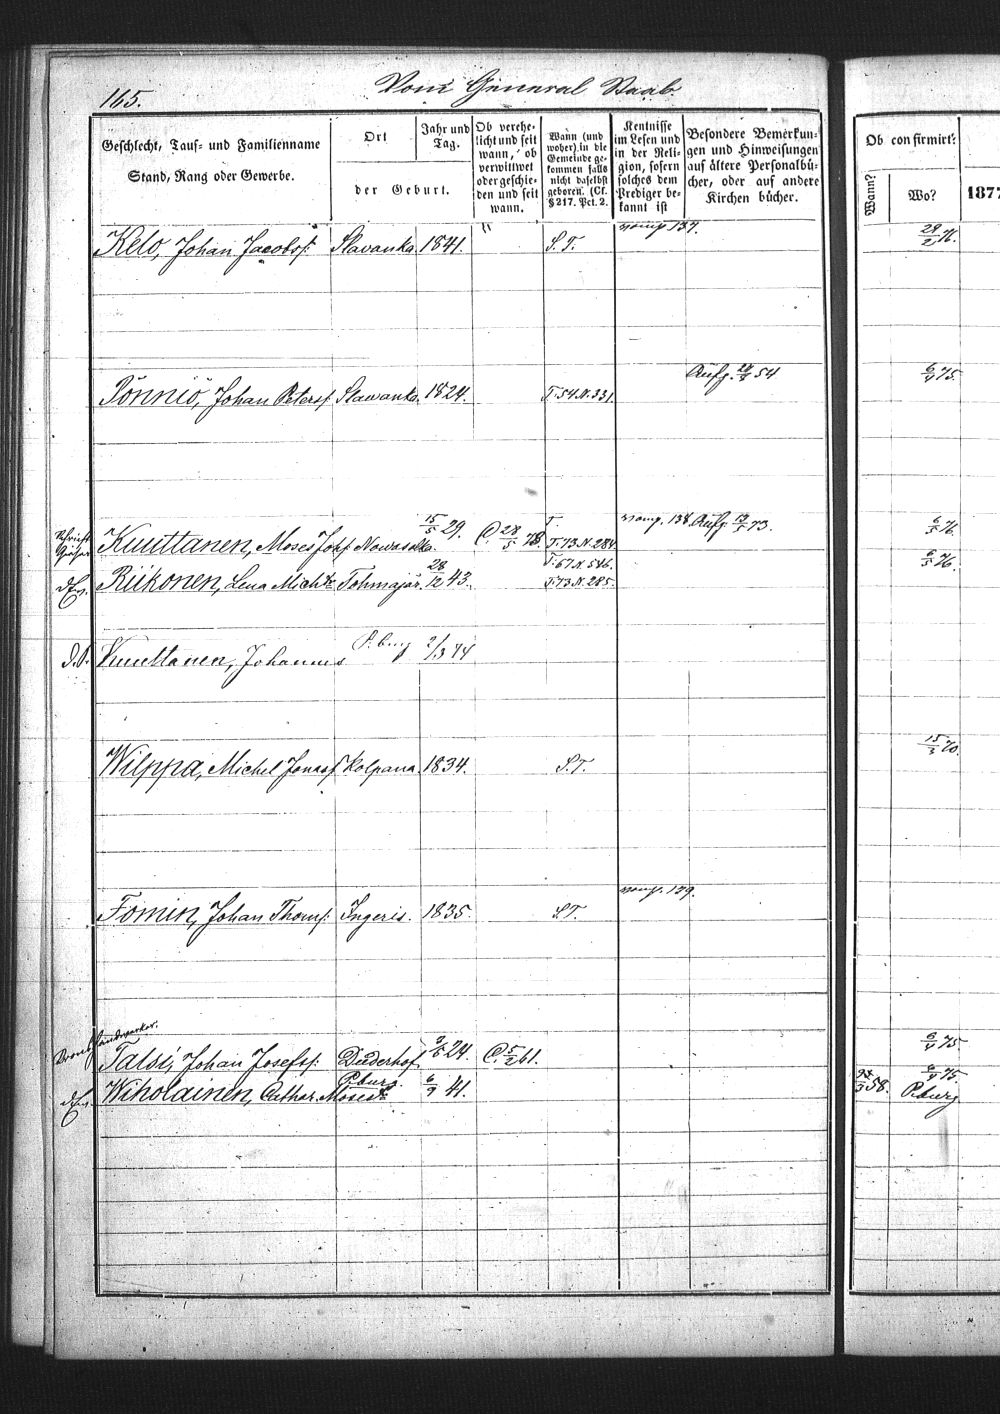 165. Vom General Staab
Geschlecht, Tauf- und Familienname
Stand, Rang oder Gewerbe.
Ort
Jahr und Tag.
der Geburt.
Ob verehe-
licht und seit
wann, ob
verwittwet
oder geschie-
den und seit
wann.
Wann (und
woher) in die
Gemeinde ge-
kommen falls
nicht daselbst
geboren. (Cf.
§ 217. Pct. 2.
Kentnisse
im Lesen und
in der Reli-
gion, sofern
solches dem
Prediger be-
kannt ist
Besondere Bemerkun-
gen und Hinweisungen
auf ältere Personalbü-
cher, oder auf andere
Kirchen bücher.
Ob confirmirt?
Wann?
Wo?
1877
Kelo, Johan Jacobsf: Slavanka. 1841. S.T. 137. 29/2 76.
Pönniö, Johan Petersf Slawanka. 1824. T.54.N.331. Aufg. 54 6/4 75.
Kuuttanen, Moses Josf Nowaselka. 15/5 29. C. 28/5 78. T. T.73.N.284. 138. Aufg. 13/5 73. 6/5 76.
Riikonen, Lena Michlt Tohmajär. 28/12 43. T.67.N.546. T.73.N.285. 6/5 76.
Kuuttanen, Johannes P.burg 2/3 74
Wilppa, Michel Jonasf Kolpana. 1834. S.T. 15/3 70.
Fomin, Johan Thomsf: Ingeris. 1835. S.T. 139.
handwerker.
Talsi, Johan Josefsf: Duderhof. 24. C. 5/2 61. 6/4 75.
Wikolainen, Cathar. Mosest P.burg. 6/9 41. 58. 6/4 75. P.burg